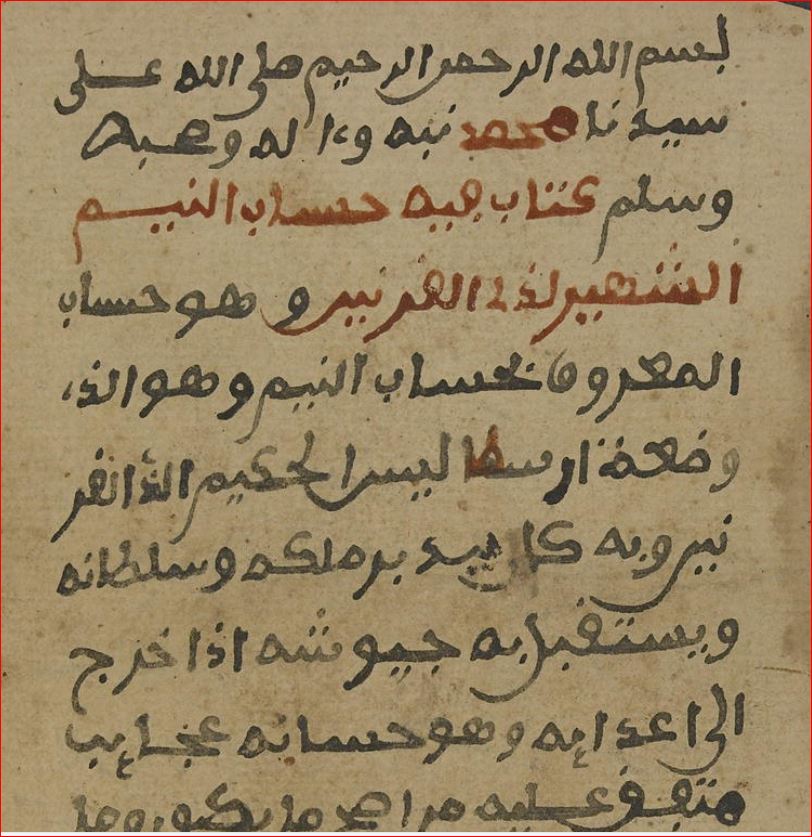 بسم الله الرحمن الرحيم صلى الله على
سيدنا محمد نبيه وءاله وصحبه
وسلم كتاب فيه حساب النيم
الشهير لذى القرنين وهو حساب
المعروف بحساب النيم وهو الذى
وضعه ارسطاليس الحكيم الذالقر
نين وبه كان يدبر ملكه وسلطانه
ويستقبل به جيوشه اذا خرج
الى اعدايه وهو حسانه عجايب
متفق عليه من اهل